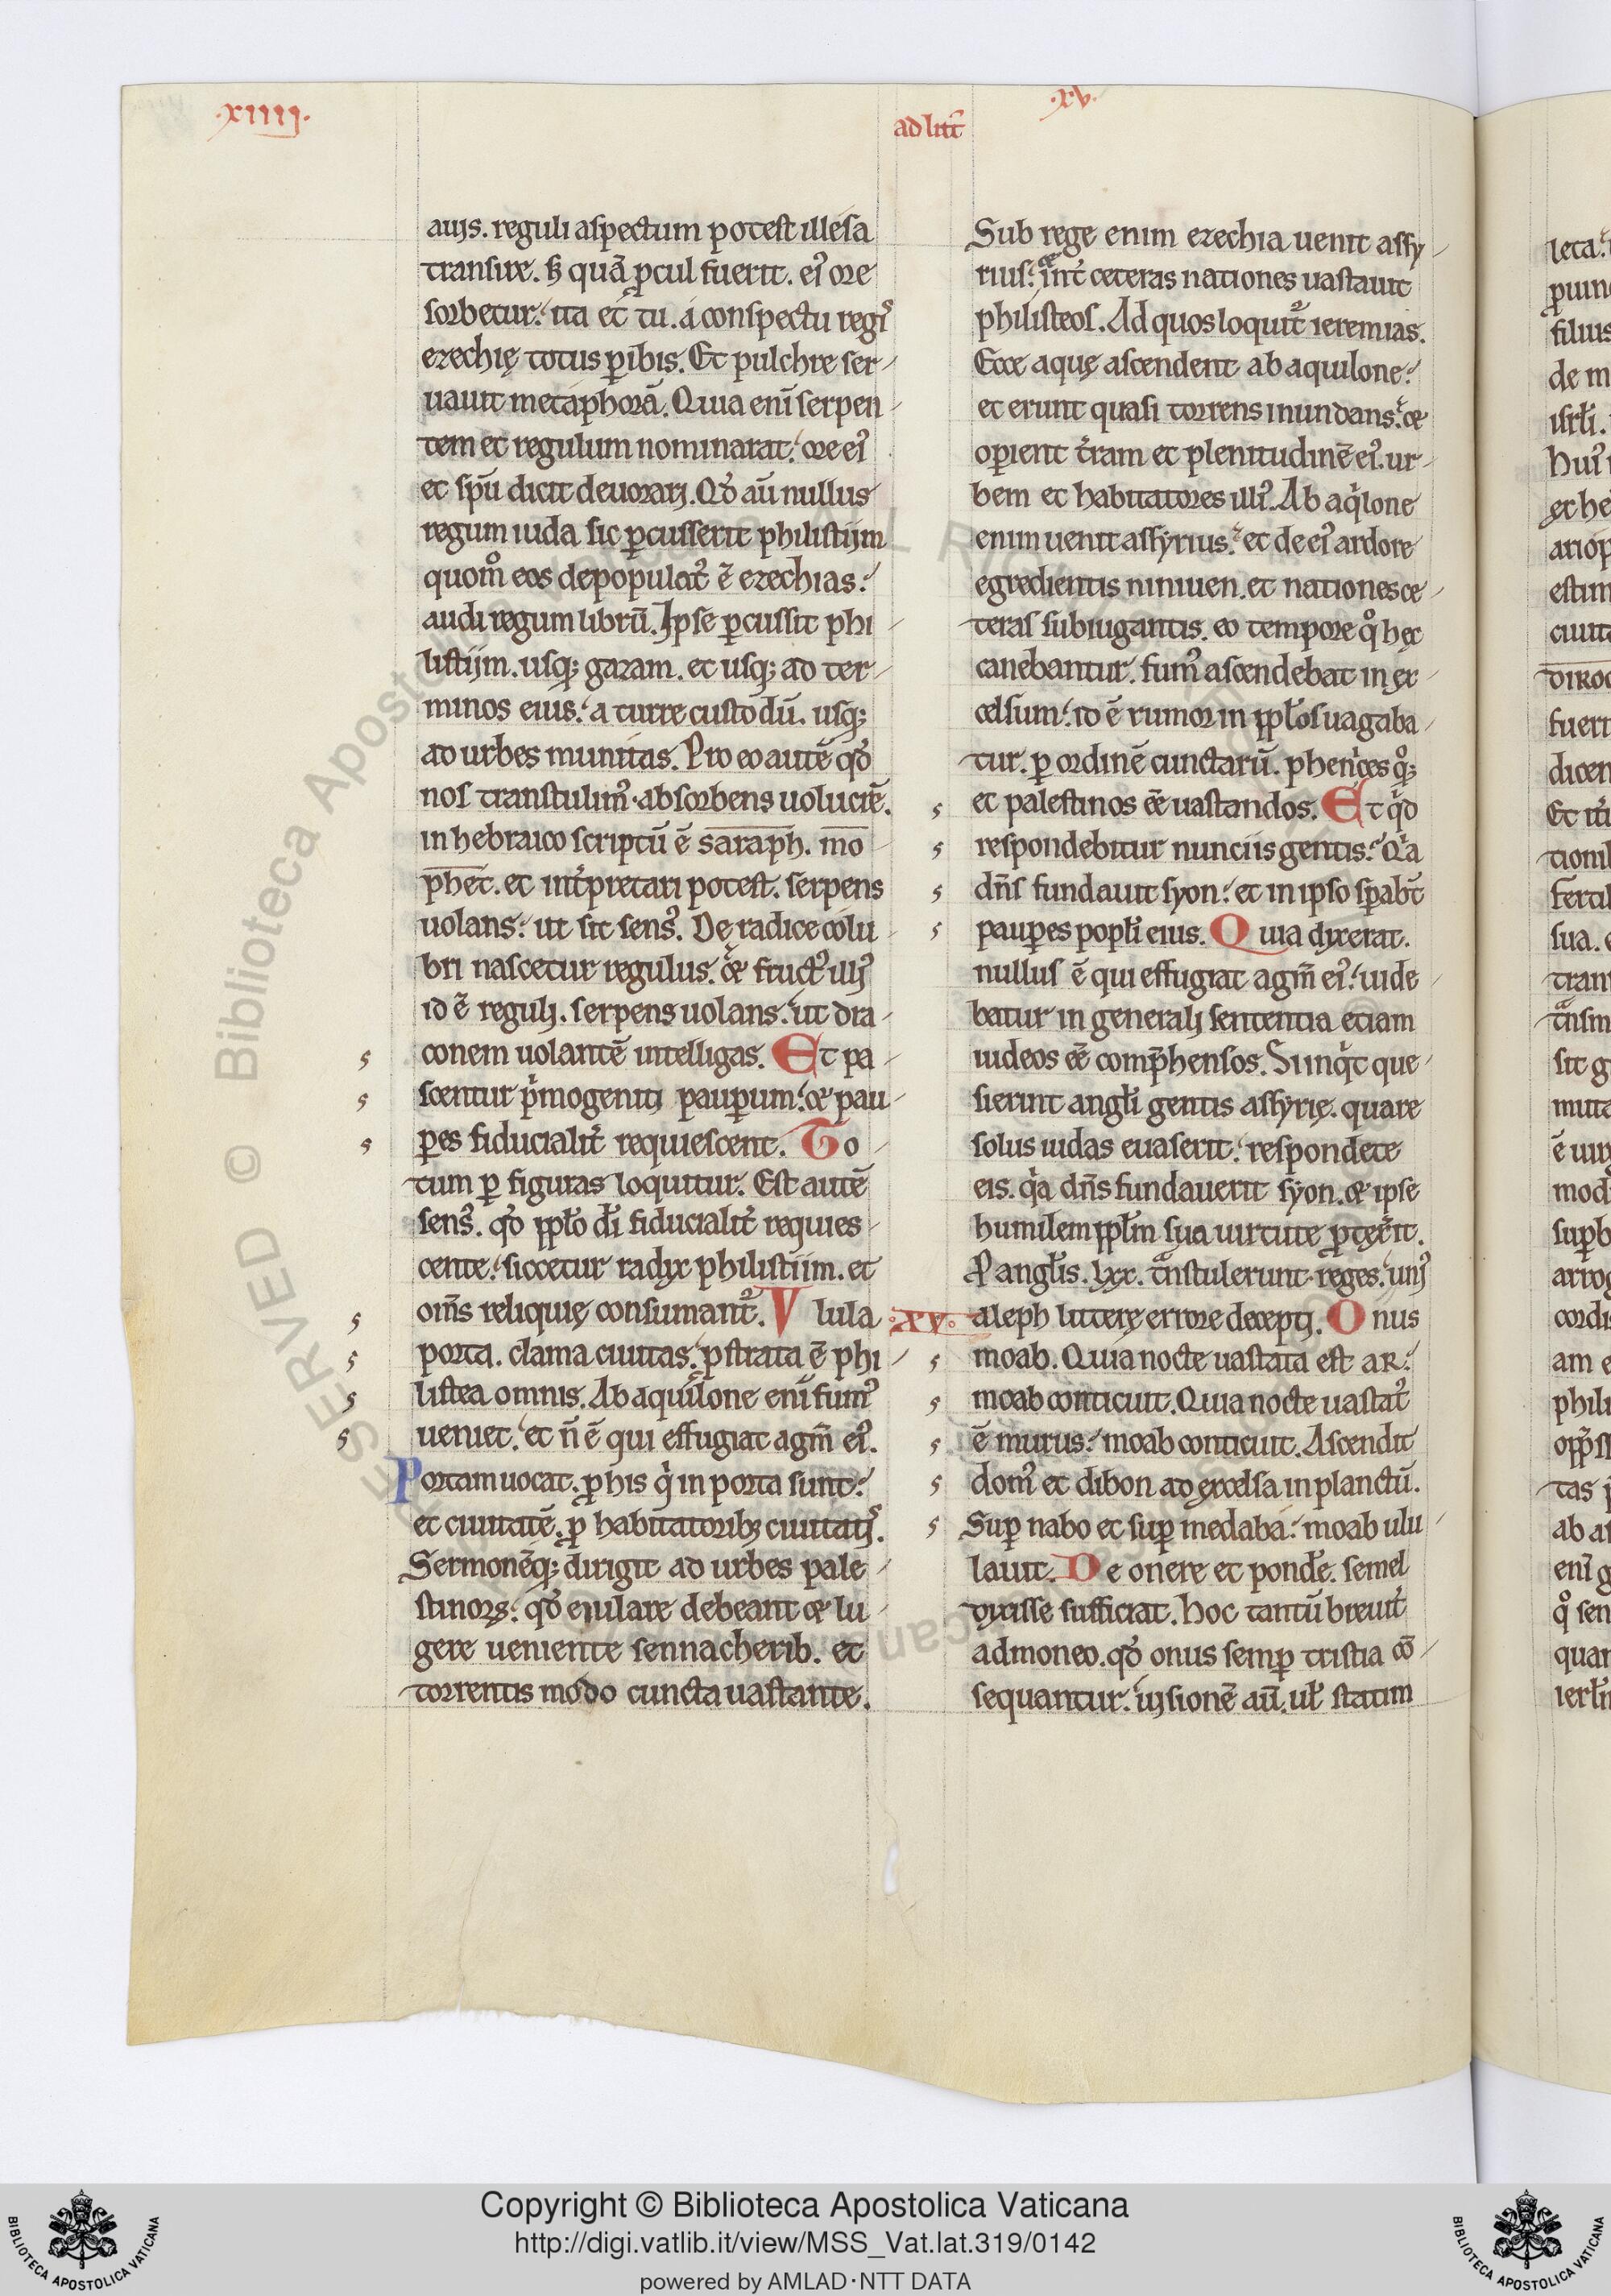 ·xiiii·
ad litt̄
·xv·
auis. reguli aspectum potest illesa
transire. sꝫ quā ꝓcul fuerit. eiꝰ ore
sorbetur: ita et tu. a conspectu regis
ezechię totus ꝑibis. Et pulchre ser-
uauit metaphorā. Quia enī serpen-
tem et regulum nominarat: ore eiꝰ
et spū dicit deuorari. Qd̓ aū nullus
regum iuda sic ꝑcusserit philistijm
quom̊ eos depopulatꝰ ē ezechias:
audi regum librū. Ipse ꝑcussit phi-
listijm. usqꝫ gazam. et usqꝫ ad ter-
minos eius: a turre custodū. usqꝫ
ad urbes munitas. Pro eo autē qd̓
nos transtulimꝰ absorbens uolucrē.
in hebraico scriptū ē saraph. mo-
phet. et int̓pretari potest. serpens
uolans: ut sit sensꝰ. De radice colu-
bri nascetur regulus. et fructꝰ illiꝰ
id ē reguli. serpens uolans: ut dra-
conem uolantē intelligas. Et pa-
scentur p̓mogeniti pauꝑum: et pau-
ꝑes fiducialit̓ requiescent. To-
tum ꝑ figuras loquitur. Est autē
sensꝰ. qd̓ pplo di fiducialit̓ requies-
cente: siccetur radyx philistijm. et
om̄s reliquię consumant᷑. Vlula
porta. clama ciuitas: ꝓstrata ē phi-
listea omnis. Ab aquilone enī fumꝰ
ueniet: et n̄ ē qui effugiat agm̄ eiꝰ.
Portam uocat. ꝓ his q̓ in porta sunt:
et ciuitatē. ꝓ habitatoribꝫ ciuitatis.
Sermonēqꝫ dirigit ad urbes pale-
stinoꝝ: qd̓ eiulare debeant et lu-
gere ueniente sennacherib. et
torrentis modo cuncta uastante.
Sub rege enim ezechia uenit assy-
rius: et int̓ ceteras nationes uastauit
philisteos. Ad quos loquit᷑ ieremias.
Ecce aquę ascendent ab aquilone:
et erunt quasi torrens inundans: et
oꝑient t̓ram et plenitudinē eiꝰ. ur-
bem et habitatores illiꝰ. Ab aq̓lone
enim uenit assyrius: et de eiꝰ ardore
egredientis niniuen. et nationes ce-
teras subiugantis. eo tempore q̊ hęc
canebantur. fumꝰ ascendebat in ex-
celsum: id ē rumor in pplos uagaba-
tur. ꝑ ordinē cunctarū. phenices q̊qꝫ
et palestinos eē uastandos. Et q̓d
respondebitur nunciis gentis: Q̓a
dn̄s fundauit syon: et in ipso sꝑabt̄
pauꝑes popli eius. Quia dyxerat.
nullus ē qui effugiat agm̄ eiꝰ: uide-
batur in generali sententia etiam
iudeos eē comp̄hensos. Si inq̓t que-
sierint angli gentis assyrię. quare
solus iudas euaserit: respondete
eis. q̓a dn̄s fundauerit syon. et ipse
humilem pplm sua uirtute ꝓtexerit.
P angl̓is. lxx. t̓nstulerunt reges: uniꝰ
·XV· aleph litterę errore decepti. Onus
moab. Quia nocte uastata est ar:
moab conticuit. Quia nocte uastatꝰ
ē murus: moab conticuit. Ascendit
domꝰ et dibon ad excelsa in planctū.
Suꝑ nabo et suꝑ medaba: moab ulu-
lauit. De onere et pond̓e. semel
dyxisse sufficiat. Hoc tantū breuit̓
admoneo. qd̓ onus semꝑ tristia cō-
sequantur: uisionē aū. ul̓ statim
Copyright © Biblioteca Apostolica Vaticana
http://digi.vatlib.it/view/MSS_Vat.lat.319/0142
powered by AMLAD·NTT DATA
BIBLIOTECA APOSTOLICA VATICANA
BIBLIOTECA APOSTOLICA VATICANA